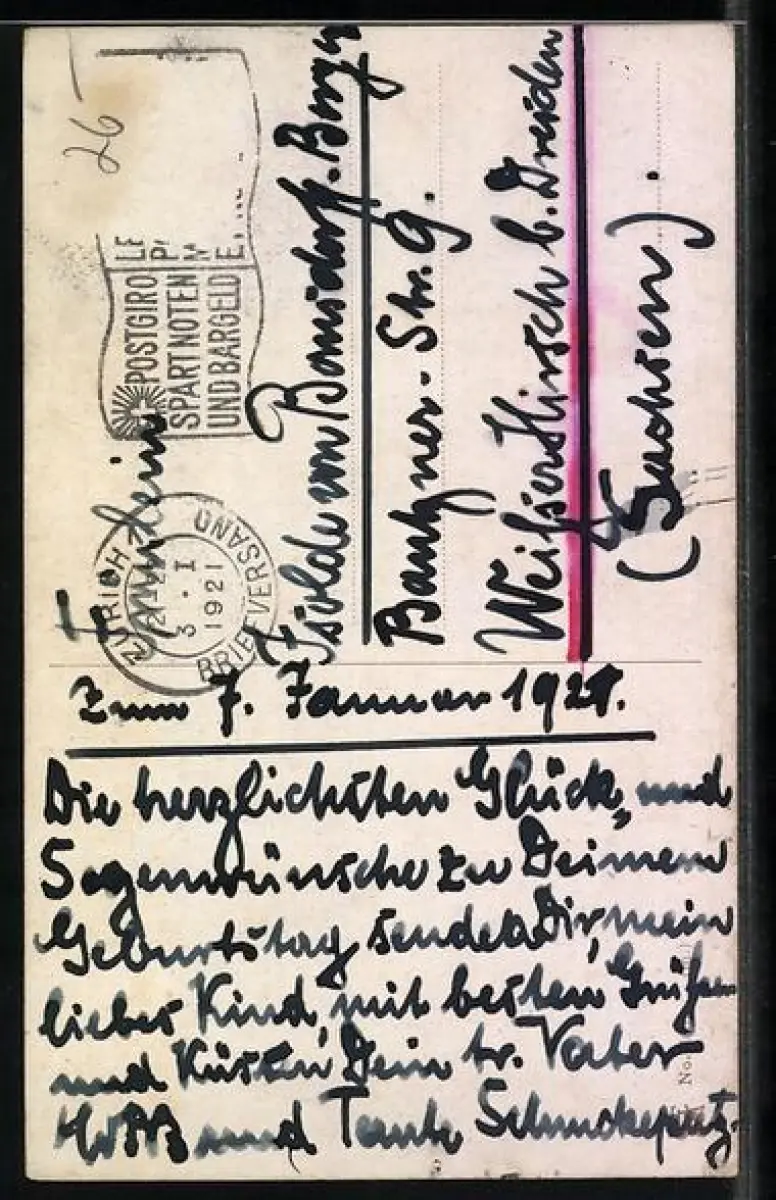 26-
POSTGIRO
SPART NOTEN
UND BARGELD
ZÜRICH
3. I
1921
BRIEFVERSAND
Fräulein
Isolde von
Bautzner-Str. 9.
Weißer Hirsch b. Dresden
(Sachsen).
Zum 7. Januar 1921.
Die herzlichsten Glück- und
Segenwünsche zu Deinem
Geburtstag sendet Dir, mein
liebes Kind, mit besten Grüßen
und Küssen Dein tr. Vater
und Tante
No.